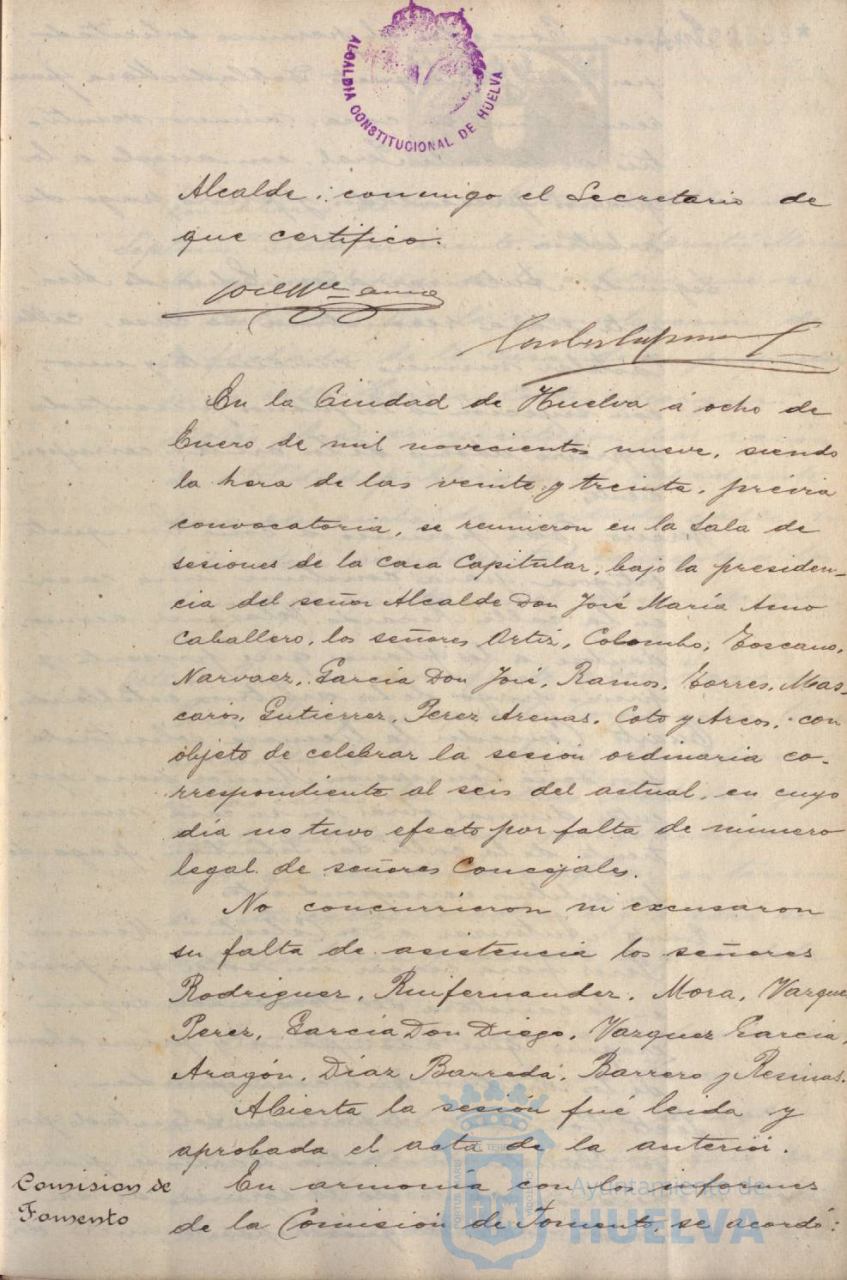 ALCALDIA CONSTITUCIONAL DE HUELVA
Alcalde; conmigo el Secretario de
que certifico.
En la Ciudad de Huelva á ocho de
Enero de mil novecientos nueve, siendo
la hora de las veinte y treinta, prévia
convocatoria, se reunieron en la Sala de
sesiones de la casa Capitular, bajo la presiden-
cia del señor Alcalde Don José María Amo
Caballero, los señores Ortiz, Colombo, Toscano,
Narvaez, García Don José, Ramos, Torres, Mas-
carós, Gutierrez, Perez Arenas, Coto y Arcos, con
objeto de celebrar la sesión ordinaria co-
rrespondiente al seis del actual, en cuyo
día no tuvo efecto por falta de número
legal de señores Concejales.
No concurrieron ni excusaron
su falta de asistencia los señores
Rodriguez, Ruifernandez, Mora, Vazquez
Perez, García Don Diego, Vazquez García,
Aragón, Díaz Barreda, Barrero y Resinas.
Abierta la sesión fué leida y
aprobada el acta de la anterior.
Comision de
Fomento
En armonía con los informes
de la Comisión de Fomento, se acordó:
Ayuntamiento de
HUELVA